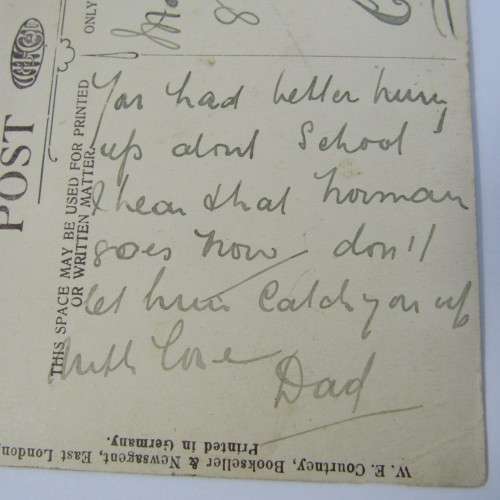 POST
ONLY
THIS SPACE MAY BE USED FOR PRINTED
OR WRITTEN MATTER.
You had better hurry
up about School
I hear that Norman
goes now don't
let him Catch you up
With Love
Dad
W. E. Courtney, Bookseller & Newsagent, East London,
Printed in Germany.